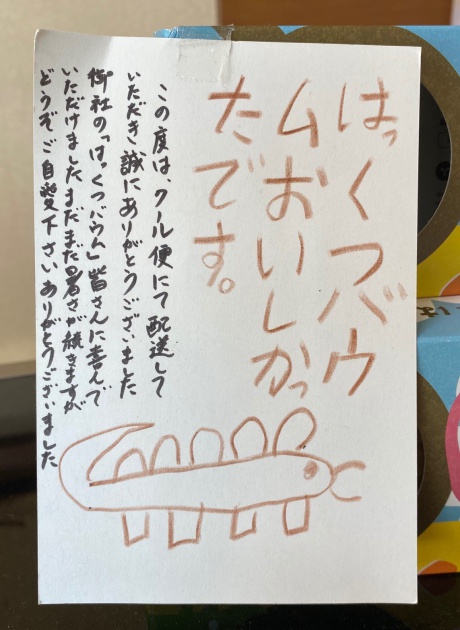 はっくつバウ
ムおいしかっ
たです。
この度は、クール便にて配送して
いただき誠にありがとうございました
御社の「はっくつバウム」皆さんに喜んで
いただけましたまだまだ暑さが続きますが
どうぞご自愛下さいありがとうございました